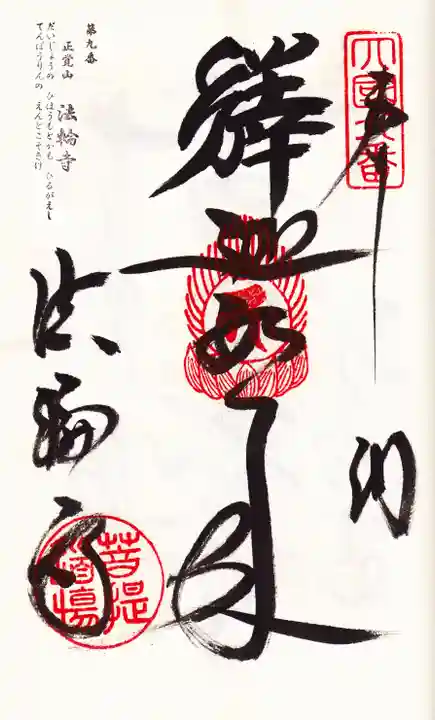 四國九番
奉納
釋迦如来
法輪寺
菩提道場
第九番
正覚山 法輪寺
だいじょうの ひほうもとがも ひるがえし
てんぽうりんの えんとこそきけ